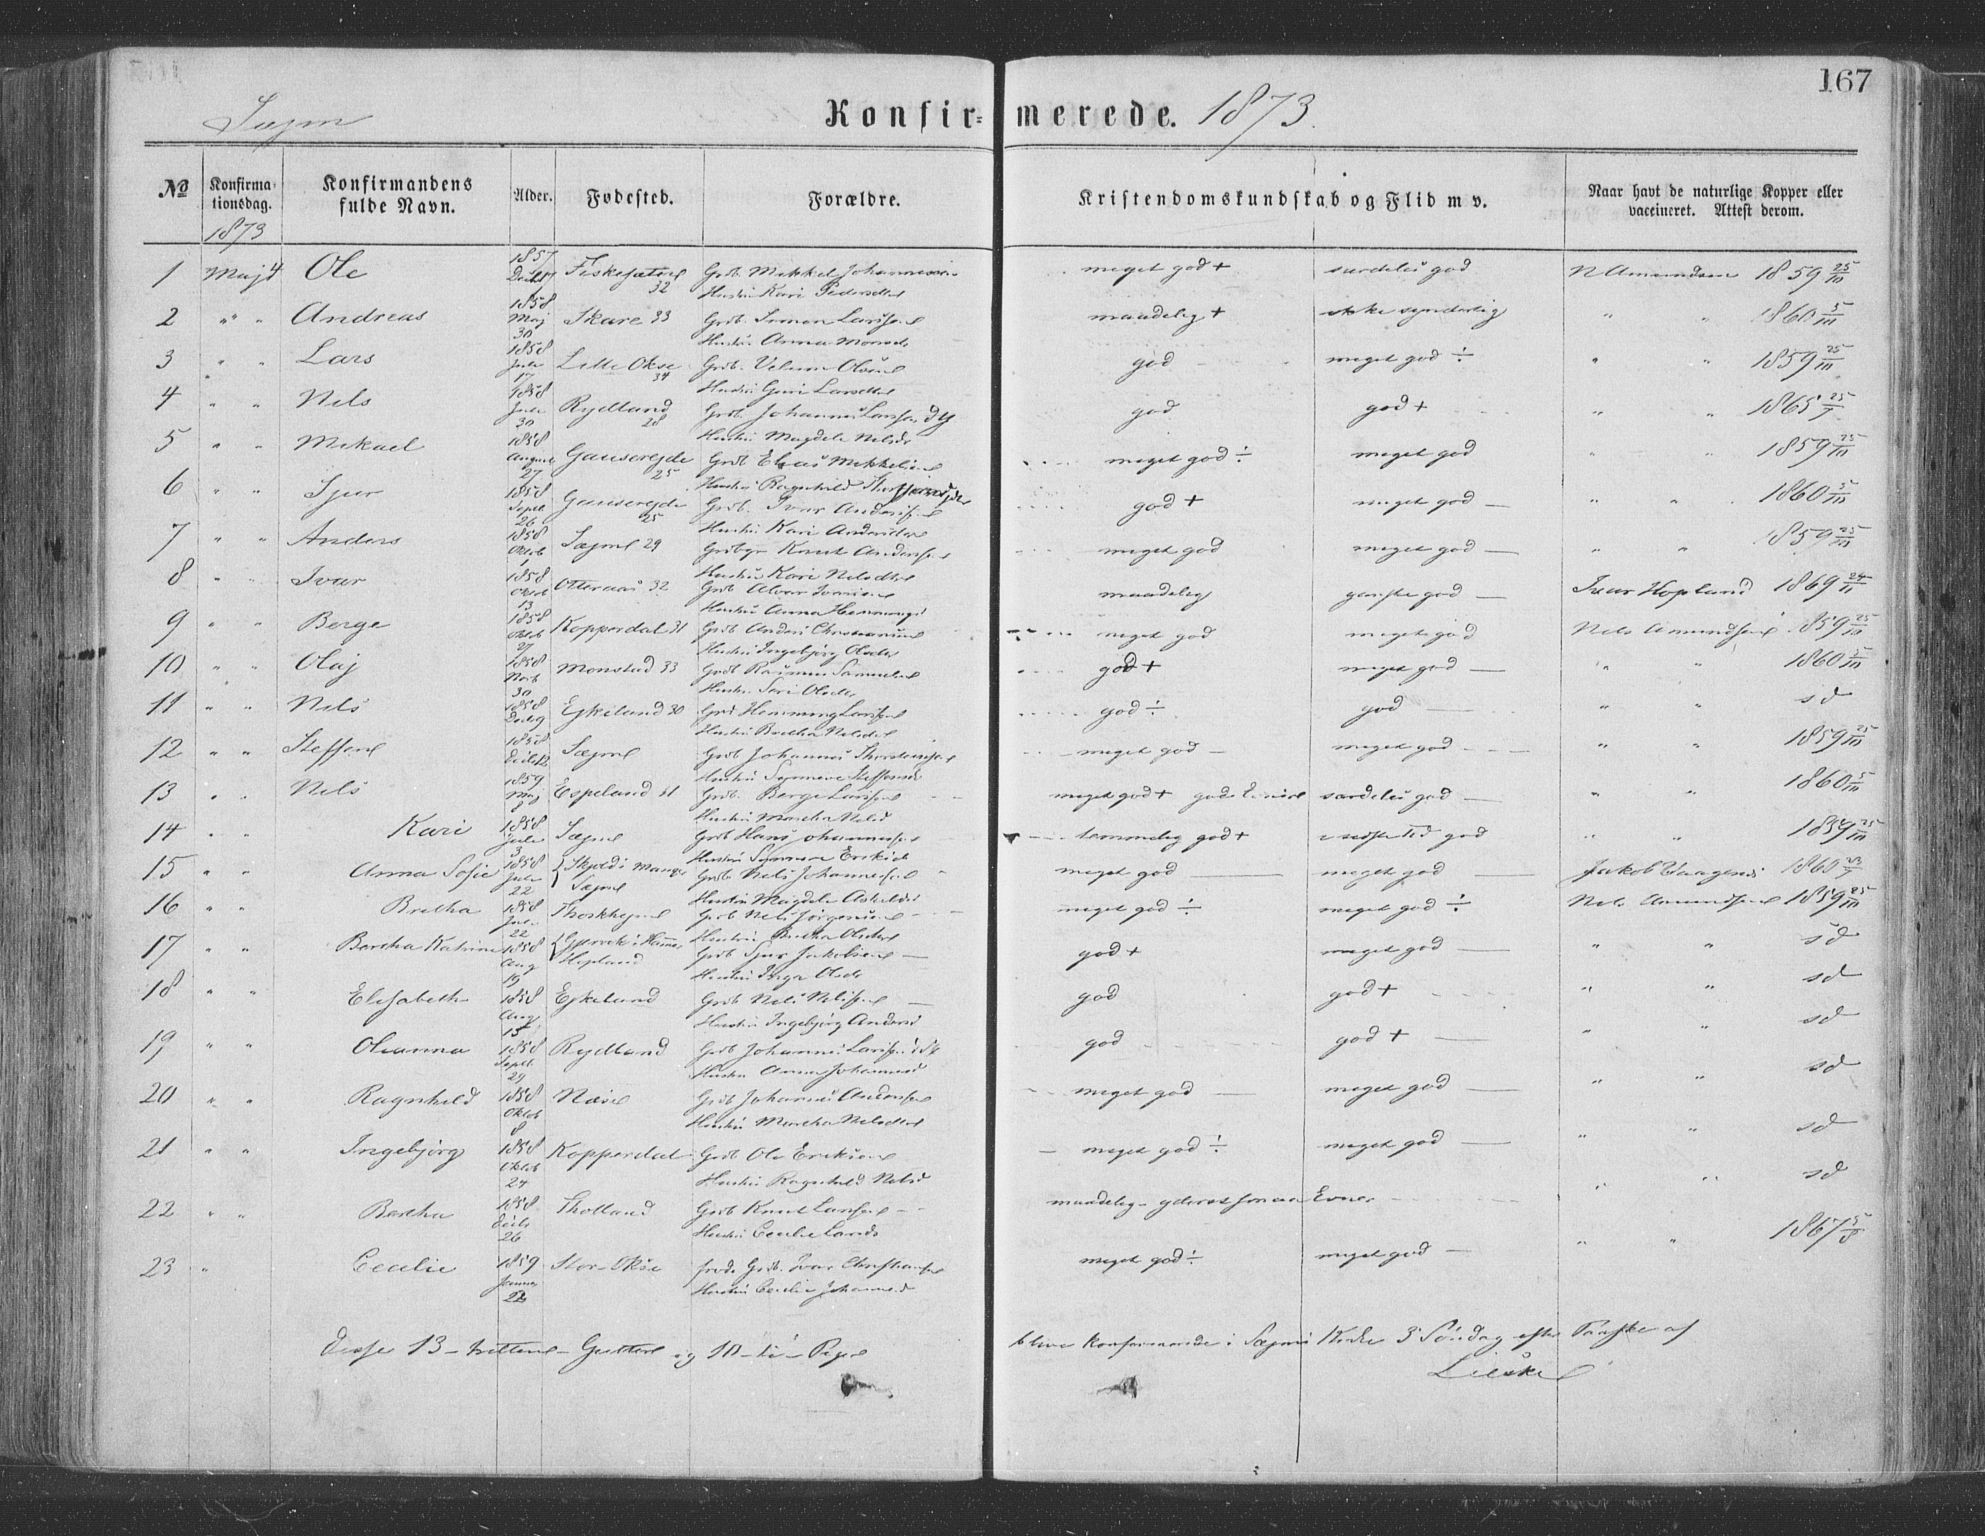 167
Sæjm
Konfirmerede. 1873.
№ Konfirmationsdag. Konfirmandens fulde Navn. Alder. Fødested. Forældre. Kristendomskundskab og Flid m v. Naar havt de naturlige Kopper eller vaccineret. Attest derom.
1873
1 Maj 4 Ole 1857 Fiskesætre 32 Grdb. Mikkel Johannessen Hustru Kari Pedersdtr meget god + særdeles god N Amundsen 1859 25/III
2 " " Andreas 1858 Maj 30 Skare 33 Grdb. Larsen Hustru Anna Monsdtr maadelig + ikke synderlig " " 1860 5/III
3 " " Lars 1858 Juli 17 Litle Okse 34 Grdb. Olsen Hustru Guri Larsdtr god meget god ÷ " " 1859 25/III
4 " " Nils 1858 Juli 30 Rydland 28 Grdb. Johannes Larsen Hustru Magdela Nilsdr god god + " " 1865 25/
5 " " Mikael 1858 August 27 Gausereide 25 Grdb Elias Mikkelsen Hustru Ragnhild meget god ÷ meget god " " 1859 25/III
6 " " Sjur 1858 Septb 26 Gausereide 25 Grdb. Ivar Andersen Hustru Kari Andersdtr god + meget god — " " 1860 5/III
7 " " Anders 1858 Oktob 1 Sæjm 29 Knut Andersen Hustru Kari Nilsdtr meget god meget god — " " 1859 25/III
8 " " Ivar 1858 Oktob 13 Otteraas 32 Grdb Ivarsen Hustru Anna maadelig ganske god — Ivar Hopland 1869 24/
9 " " Berge 1858 Oktob 27 Kopperdal 31 Grdb Anders Christiansen Hustru Ingebjørg Olsdtr meget god meget god Nils Amundsen 1859 25/III
10 " " Olaj 1858 Novb 30 Monstad 33 Grdb Rasmus Samuelsen Hustru Olsdtr god + meget god — " " 1860 5/III
11 " " Nils 1858 Decb 9 Ejkeland 30 Grdb Hemming Larsen Hustru Bretha Nilsdtr god ÷ god — " " sd
12 " " Steffen 1858 Sæjm Grdb Johannes Thorsteinsen Hustru Synneve Steffensd meget god — meget god — " " 1859 25/III
13 " " Nils 1859 Maj 8 Espeland 31 Grdb. Berge Larsen Hustru Martha Nilsd meget god + gode Evner særdeles god — " " 1860 5/III
14 " " Kari 1858 Juli 3 Sæjm Grdb Hans Johannessen Hustru Synneve Eriksd temmelig god + i sidste Tid god " " 1859 25/III
15 " " Anna Sofie 1858 Juli 22 Skjold i Manger Sæjm Grdb Nils Johannessen Hustru Magdela meget god — meget god — Jakob 1860
16 " " Bretha 1858 Juli 22 Grdb Nils Jørgensen Hustru Bretha Olsdtr meget god ÷ meget god ÷ Nils Amundsen 1859 25/III
17 " " Bertha Katrine 1858 Aug 19 Hopland Grdb Sjur Jakobsen Hustru Inga Olsdr god + meget god — " " sd
18 " " Elisabeth 1858 Aug 15 Ejkeland Grdb Nils Nilsen — Hustru Ingebjørg Andersd god god + " " sd
19 " " Olianna 1858 Septb 29 Rydland Grdb Johannes Larsen Hustru Anna Johannesd god god + — " " sd
20 " " Ragnhild 1858 Oktob 8 Næse Grdb Johannes Andersen Hustru Martha Nilsdtr meget god — meget god — " " sd
21 " " Ingebjørg 1858 Oktob 24 Kopperdal Grdb Ole Eriksen Hustru Ragnhild Nilsd meget god ÷ meget god — " " sd
22 " " Bertha 1858 26 Tholland Grdb Knut Larsen Hustru Cecilie Larsdr maadelig — yderst smaa Evner " " sd
23 " Cecilie 1859 Januar 22 Stor-Okse Grdb. Ivar Christiansen Hustru Cecilie Johannesd meget god ÷ meget god — " " 1867
Disse 13 – tretten – Gutter og 10 – ti – Piger bleve konfirmerede i Sæjms Kirke 3 Søndag efter Paaske af